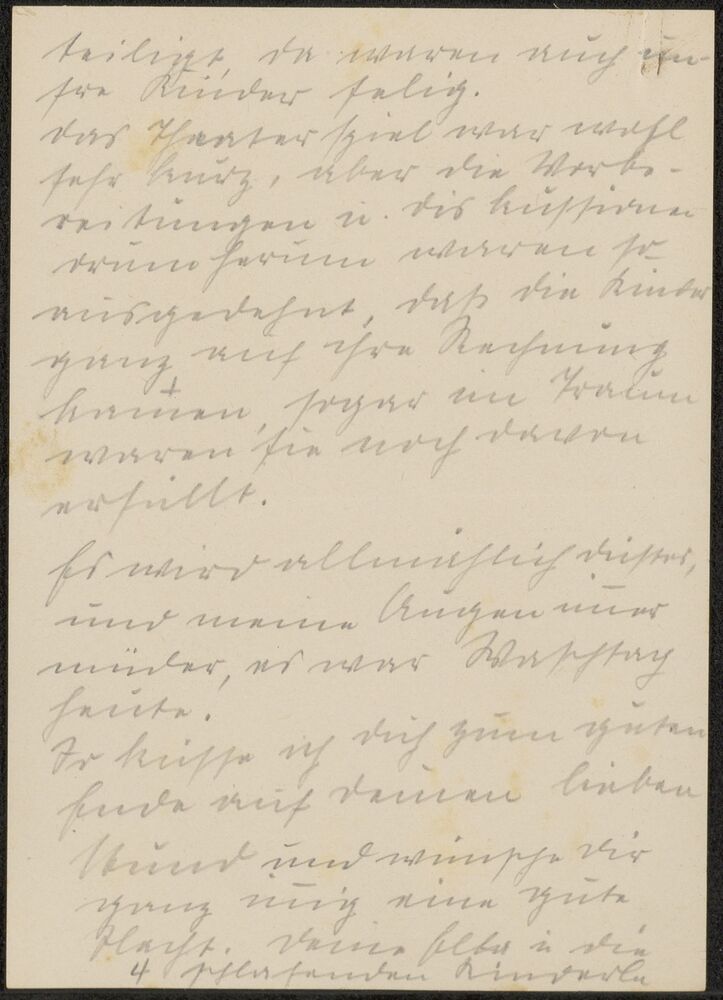 teiligt, da waren auch un-
sre Kinder selig.
Das Theaterspiel war wohl
sehr kurz, aber die Vorbe-
reitungen u. Diskussionen
drum herum waren so
ausgedehnt, daß die Kinder
ganz auf ihre Rechnung
kamen, sogar im Traum
waren sie noch davon
erfüllt.
Es wird allmählich düster,
und meine Augen im̄er
müder, es war Waschtag
heute.
So küsse ich dich zum guten
Ende auf deinen lieben
Mund und wünsche dir
ganz in̄ig eine gute
Nacht. Deine u die
4 schlafenden Kinderle